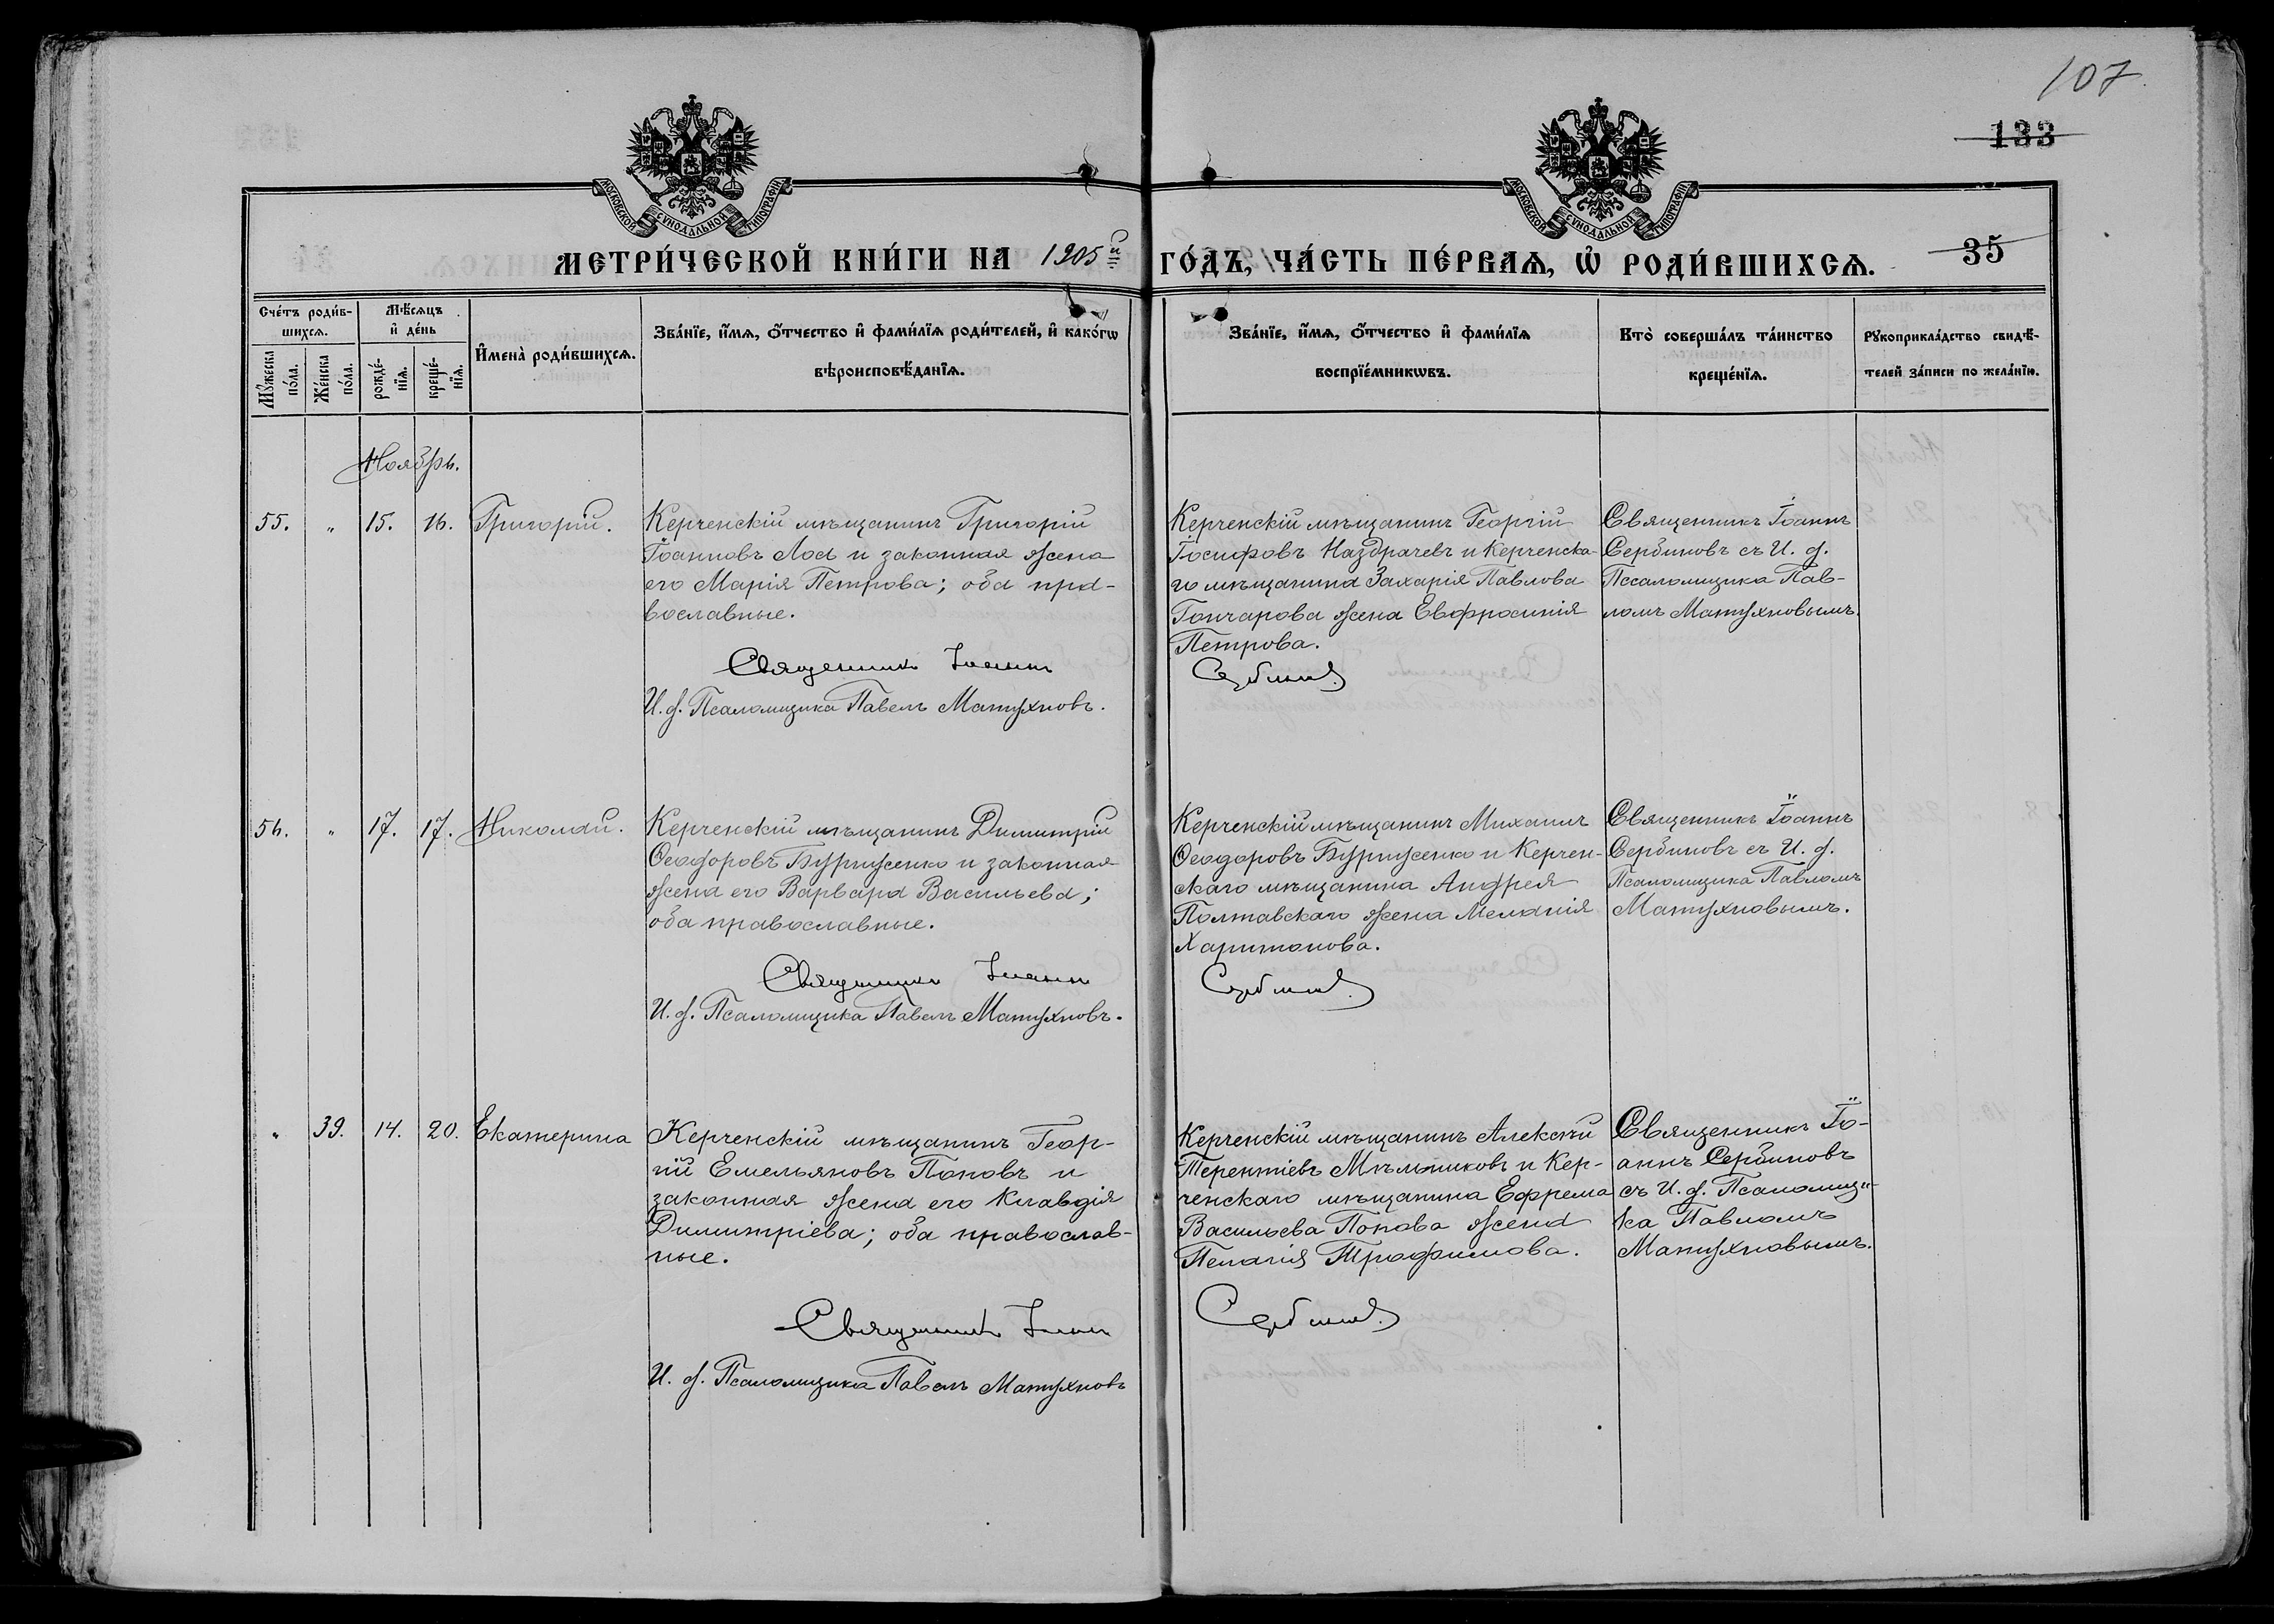 107
133
МОСКОВСКОЙ СУНОДАЛЬНОЙ ТИПОГРАФІИ
МОСКОВСКОЙ СУНОДАЛЬНОЙ ТИПОГРАФІИ
МЕТРИ́ЧЕСКОЙ КНИ́ГИ НА 1905й ГО́ДЪ, ЧА́СТЬ ПЕ́РВАѦ, Ѡ҆ РОДИ́ВШИХСѦ.
35
Сче́тъ роди́в-
шихсѧ.
Мꙋ́жеска
по́ла.
Же́нска
по́ла.
Мѣ́сяцъ
и҆ де́нь
рожде́-
нїѧ.
креще́-
нїѧ.
И҆мена̀ роди́вшихсѧ.
Зва́нїе, и҆́мѧ, ѻ҆́тчество и҆ фами́лїѧ роди́телей, и҆ како́гѡ
вѣроисповѣ́данїѧ.
Зва́нїе, и҆́мѧ, ѻ҆́тчество и҆ фами́лїѧ
воспрїе́мникѡвъ.
Кто̀ соверша́лъ та́инство
креще́нїѧ.
Рꙋкоприкла́дство свидѣ́-
телей за́писи по жела́нїю.
Ноябрь.
55. " 15. 16. Григорій.
Керченскій мѣщанинъ Григорій
Іоанновъ Лось и законная жена
его Марія Петрова; оба пра-
вославные.
Священникъ Іоаннъ
И. д. Псаломщика Павелъ Матухновъ.
Керченскій мѣщанинъ Георгій
Іосифовъ Наздрачевъ и Керченска-
го мѣщанина Захарія Павлова
Гончарова жена Евфросинія
Петрова.
Сербиновъ.
Священникъ Іоаннъ
Сербиновъ съ И. д.
Псаломщика Пав-
ломъ Матухновымъ.
56. " 17. 17. Николай.
Керченскій мѣщанинъ Димитрій
Ѳеодоровъ Бурнусенко и законная
жена его Варвара Васильева;
оба православные.
Священникъ Іоаннъ
И. д. Псаломщика Павелъ Матухновъ.
Керченскій мѣщанинъ Михаилъ
Ѳеодоровъ Бурнусенко и Керчен-
скаго мѣщанина Андрея
Полтавскаго жена Меланія
Харитонова.
Сербиновъ.
Священникъ Іоаннъ
Сербиновъ съ И. д.
Псаломщика Павломъ
Матухновымъ.
" 39. 14. 20. Екатерина
Керченскій мѣщанинъ Геор-
гій Емельяновъ Поповъ и
законная жена его Клавдія
Димитріева; оба православ-
ные.
Священникъ Іоаннъ
И. д. Псаломщика Павелъ Матухновъ
Керченскій мѣщанинъ Алексѣй
Терентіевъ Мѣльниковъ и Кер-
ченскаго мѣщанина Ефрема
Васильева Попова жена
Пелагія Трофимова.
Сербиновъ.
Священникъ Іо-
аннъ Сербиновъ
съ И. д. Псаломщи-
ка Павломъ
Матухновымъ.